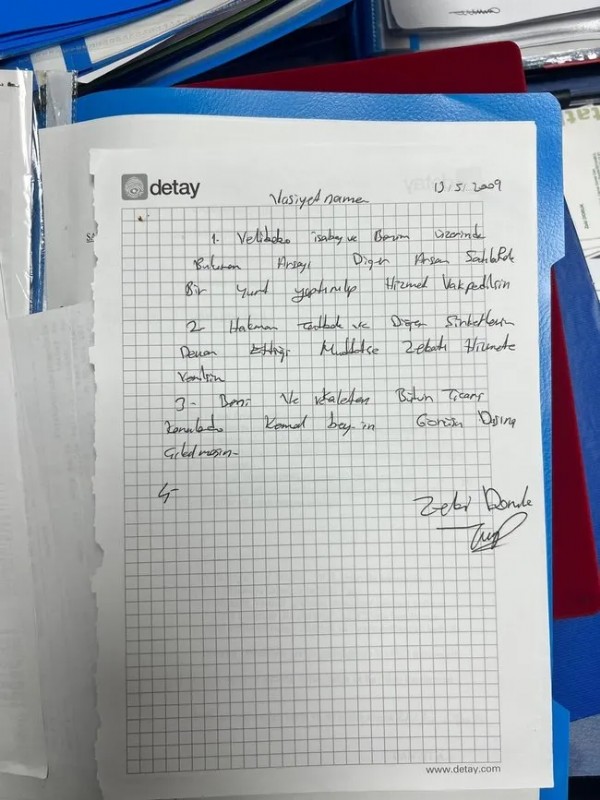 detay
Vasiyetname
13.5.2009
1. Velibaba isabey ve Benim üzerimde
Bulunan Arsayı Diger Arsam Satılarak
Bir Yurt yaptırılıp Hizmet Vakpedilsin
2 Hakman ve Diger Şirketlerim
Devam Ettiği Muddetçe Zekatı Hizmete
Verilsin
3- Dini Ve Bütün Ticari
Konularda Kemal bey-in Görüşü Dışına
Çıkılmasın-
4-
Zeki
www.detay.com